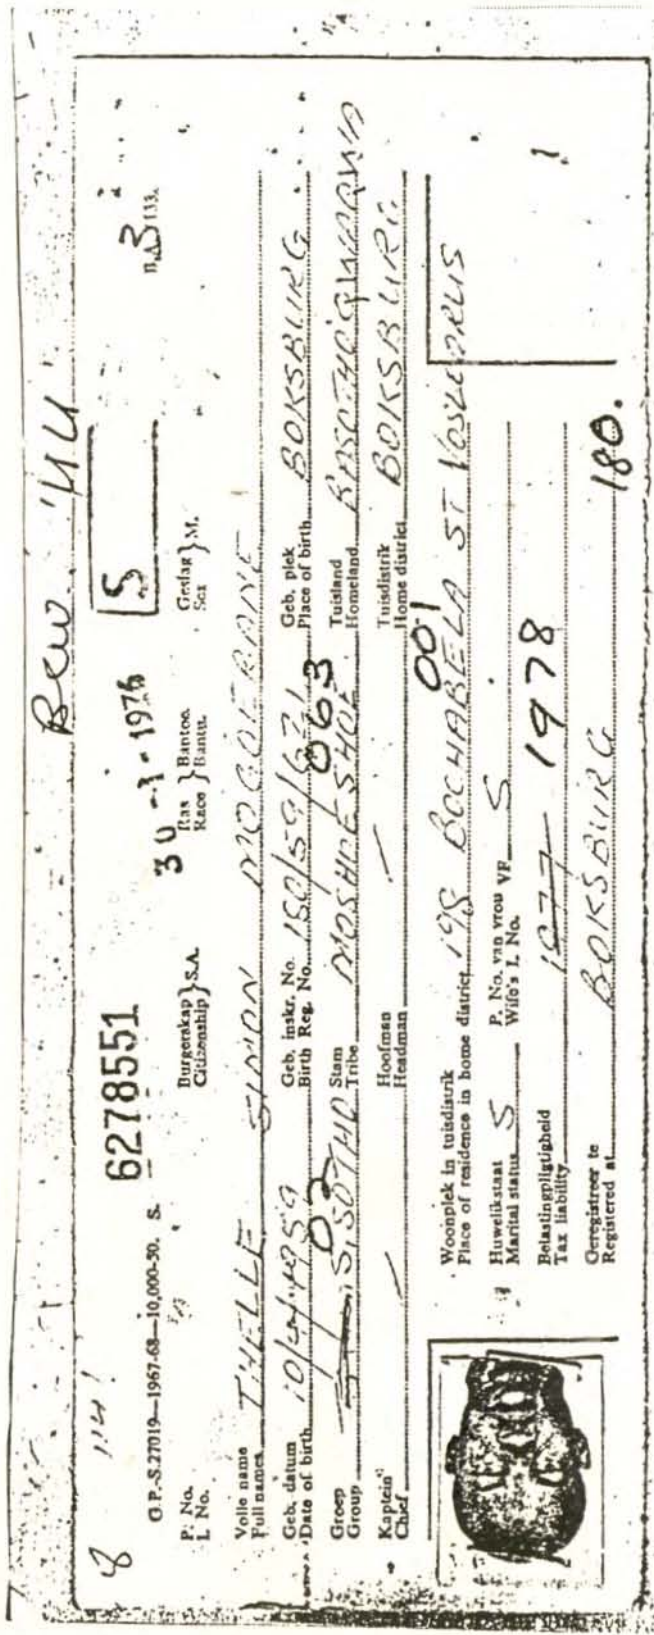 8
Bew 'UU'
G.P.-S.27019—1967-68—10,000-50. S.
6278551
30 -3- 1976
S
B.A. 133.
3
P. No.
I. No.
Burgerskap } S.A.
Citizenship
Ras } Bantoe.
Race } Bantu.
Geslag } M.
Sex
Volle name
Full names THELLE SIMON MOGOERANE
Geb. datum
Date of birth 10/4/1959
Geb. inskr. No.
Birth Reg. No. 150/59/621
Geb. plek
Place of birth BOKSBURG
Groep
Group S. SOTHO 02
Stam
Tribe MOSHOESHOE 063
Tuisland
Homeland BASOTHO QWAQWA
Kaptein
Chief
Hoofman
Headman
Tuisdistrik
Home district BOKSBURG
001
Woonplek in tuisdistrik
Place of residence in home district 198 BOCHABELA ST VOSLOORUS
Huwelikstaat
Marital status S
P. No. van vrou VF
Wife's I. No. S
Belastingpligtigheid
Tax liability 1977 1978
Geregistreer te
Registered at BOKSBURG
180.